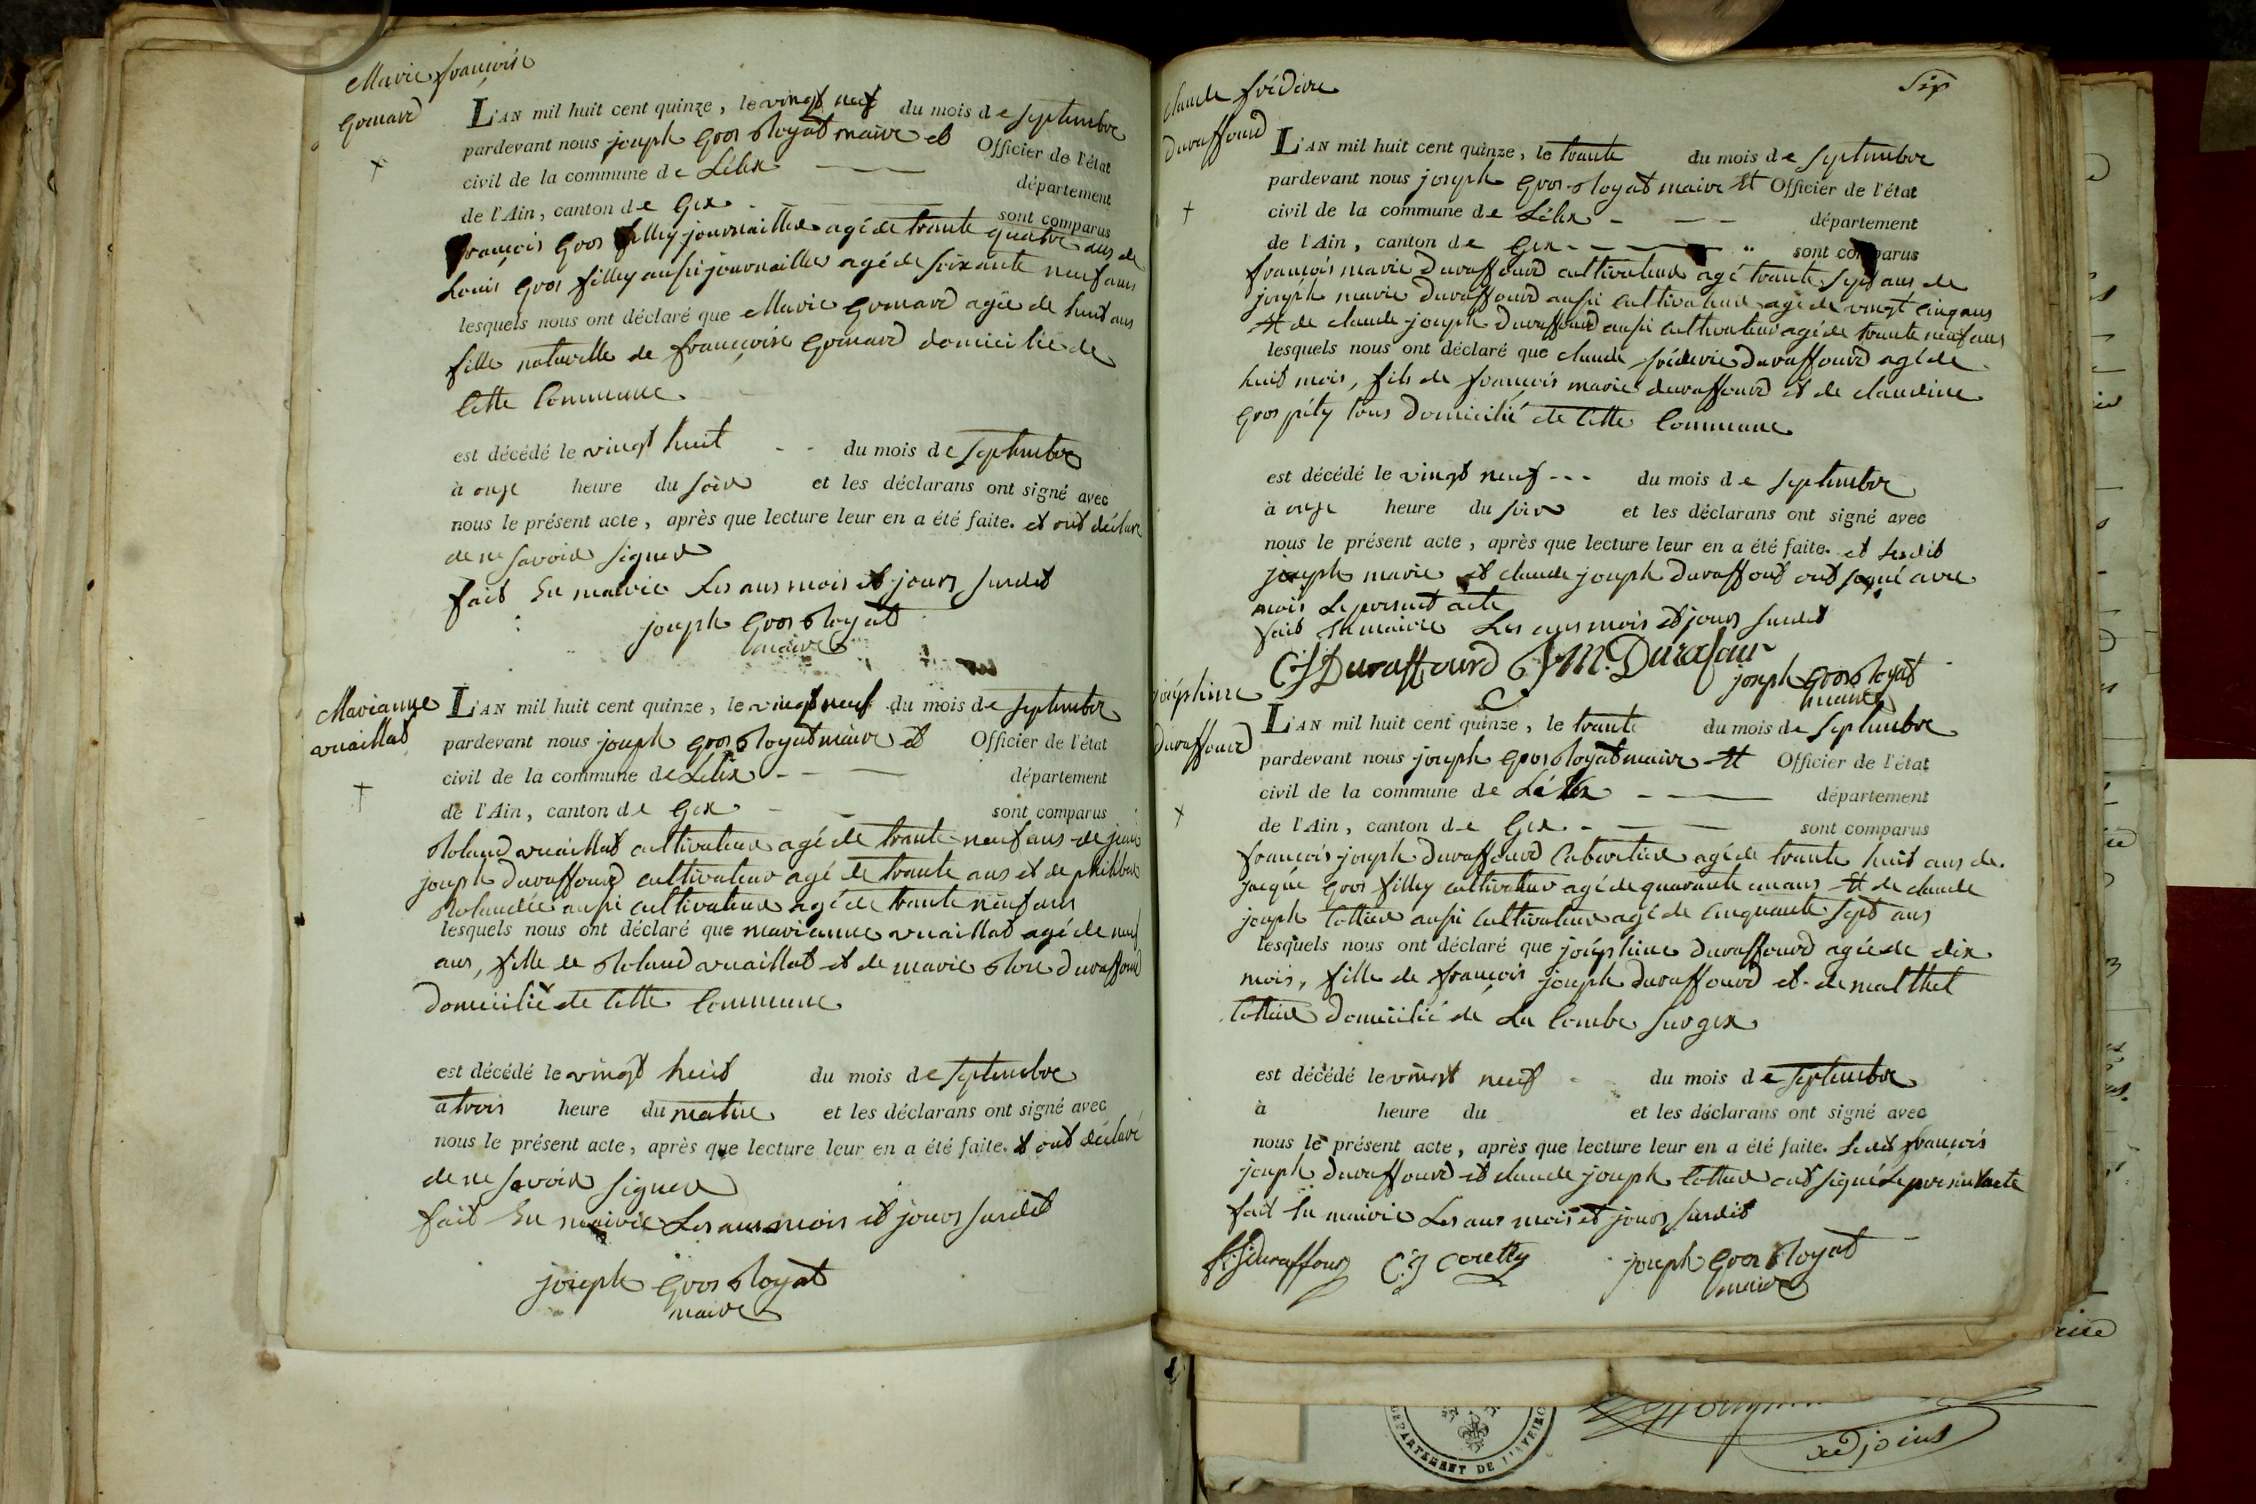 Marie françoise
Gromard
L'AN mil huit cent quinze, le vingt neuf du mois de septembre
pardevant nous joseph Gros Royat maire et Officier de l'état
civil de la commune de Lélex département
de l'Ain, canton de Gex sont comparus
françois Gros filley journaillier agé de trante quatre ans de
Louis Gros filley ausi journaillier agé de soixante neuf ans
lesquels nous ont déclaré que Marie Gromard agée de huit ans
fille naturelle de françoise Gromard domicilié de
Cette Commune
est décédé le vingt huit du mois de septembre
à onze heure du soir et les déclarans ont signé avec
nous le présent acte, après que lecture leur en a été faite. et ont déclaré
de ne savoir signer
fait En mairie Les ans mois et jours susdit
joseph Gros Royat
maire
Marianne
vuaillat
L'AN mil huit cent quinze, le vingt neuf du mois de septembre
pardevant nous joseph Gros Royat maire et Officier de l'état
civil de la commune de Lélex département
de l'Ain, canton de Gex sont comparus
Roland vuaillat cultivateur agé de trante neuf ans de jean
joseph Duraffourd cultivateur agé de trante ans et de philibert
Rolandée ausi cultivateur agé de trante neuf ans
lesquels nous ont déclaré que marianne vuaillat agé de neuf
ans, fille de Roland vuaillat et de marie Rose Duraffourd
domicilié de Cette Commune
est décédé le vingt huit du mois de septembre
à trois heure du matin et les déclarans ont signé avec
nous le présent acte, après que lecture leur en a été faite. et ont déclaré
de ne savoir signer
fait En mairie Les ans mois et jours susdit
joseph Gros Royat
maire
Six
Claude frédéric
Duraffourd
L'AN mil huit cent quinze, le trante du mois de septembre
pardevant nous joseph Gros Royat maire et Officier de l'état
civil de la commune de Lélex département
de l'Ain, canton de Gex sont comparus
françois marie Duraffourd cultivateur agé trante sept ans de
joseph marie Duraffourd ausi cultivateur agé de vingt cinq ans
et de claude joseph Duraffourd ausi cultivateur agé de trante neuf ans
lesquels nous ont déclaré que claude fréderic Duraffourd agé de
huit mois, fils de françois marie duraffourd et de claudine
Gros pity tous Domicilié de Cette Commune
est décédé le vingt neuf du mois de septembre
à onze heure du soir et les déclarans ont signé avec
nous le présent acte, après que lecture leur en a été faite. et lesdit
joseph marie et claude joseph Duraffout ont signé avec
mois Le present acte
fait En mairie Les ans mois et jours susdit
CJ Duraffourd J M. Durafour
joseph Gros Royat
maire
joséphine
Duraffourd
L'AN mil huit cent quinze, le trante du mois de septembre
pardevant nous joseph Gros Royat maire et Officier de l'état
civil de la commune de Lélex département
de l'Ain, canton de Gex sont comparus
françois joseph Duraffourd Cabartier agé de trante huit ans de
jaque Gros filley cultivateur agé de quarante un ans et de claude
joseph Cottier ausi Cultivateur agé de Cinquante sept ans
lesquels nous ont déclaré que joséphine Duraffourd agée de dix
mois, fille de françois joseph Duraffourd et de
Cottier Domicilié de La Combe sur gex
est décédé le vingt neuf du mois de septembre
à heure du et les déclarans ont signé avec
nous le présent acte, après que lecture leur en a été faite. Ledit françois
joseph Duraffourd et claude joseph Cottier ont signé Le present acte
fait En mairie Les ans mois et jours susdit
f. J Duraffour C. J joseph Gros Royat
maire
DEPARTEMENT DE L'AVEIRON
adjoint